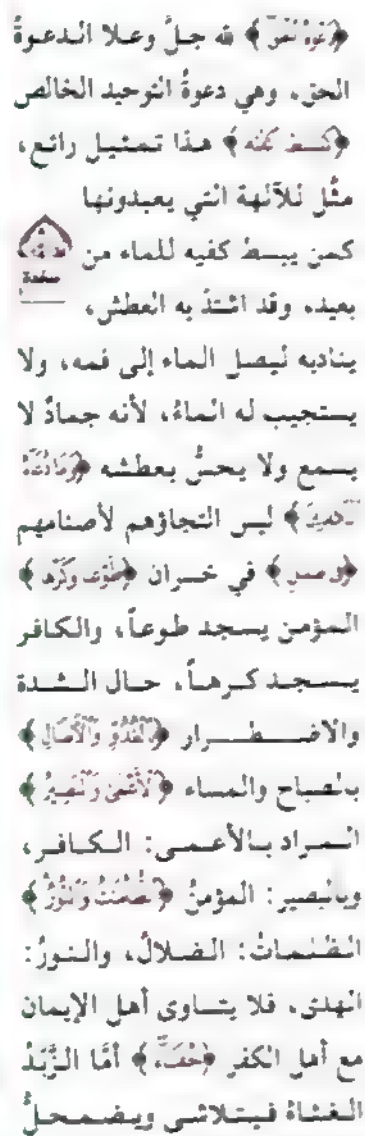 ﴿دَعْوَةُ الْحَقِّ﴾ لله جلَّ وعلا الدعوةُ
الحق، وهي دعوةُ التوحيد الخالص
﴿كَبَاسِطِ كَفَّيْهِ﴾ هذا تمثيل رائع،
مثَّل للآلهة التي يعبدونها
كمن يبسط كفيه للماء من
سجدة
بعيد، وقد اشتدَّ به العطش،
يناديه ليصل الماء إلى فمه، ولا
يستجيب له الماءُ، لأنه جمادٌ لا
يسمع ولا يحسُّ بعطشه ﴿وَمَا دُعَاءُ
الْكَافِرِينَ﴾ ليس التجاؤهم لأصنامهم
﴿فِي ضَلَالٍ﴾ في خسران ﴿طَوْعًا وَكَرْهًا﴾
المؤمن يسجد طوعاً، والكافر
يسجد كرهاً، حال الشدة
والاضطرار ﴿بِالْغُدُوِّ وَالْآصَالِ﴾
بالصباح والمساء ﴿الْأَعْمَىٰ وَالْبَصِيرُ﴾
المراد بالأعمى: الكافر،
وبالبصير: المؤمنُ ﴿الظُّلُمَاتُ وَالنُّورُ﴾
الظلماتُ: الضلالُ، والنورُ:
الهدى، فلا يتساوى أهل الإيمان
مع أهل الكفر ﴿جُفَاءً﴾ أمَّا الزَّبَدُ
الغثاءُ فيتلاشى ويضمحلُّ